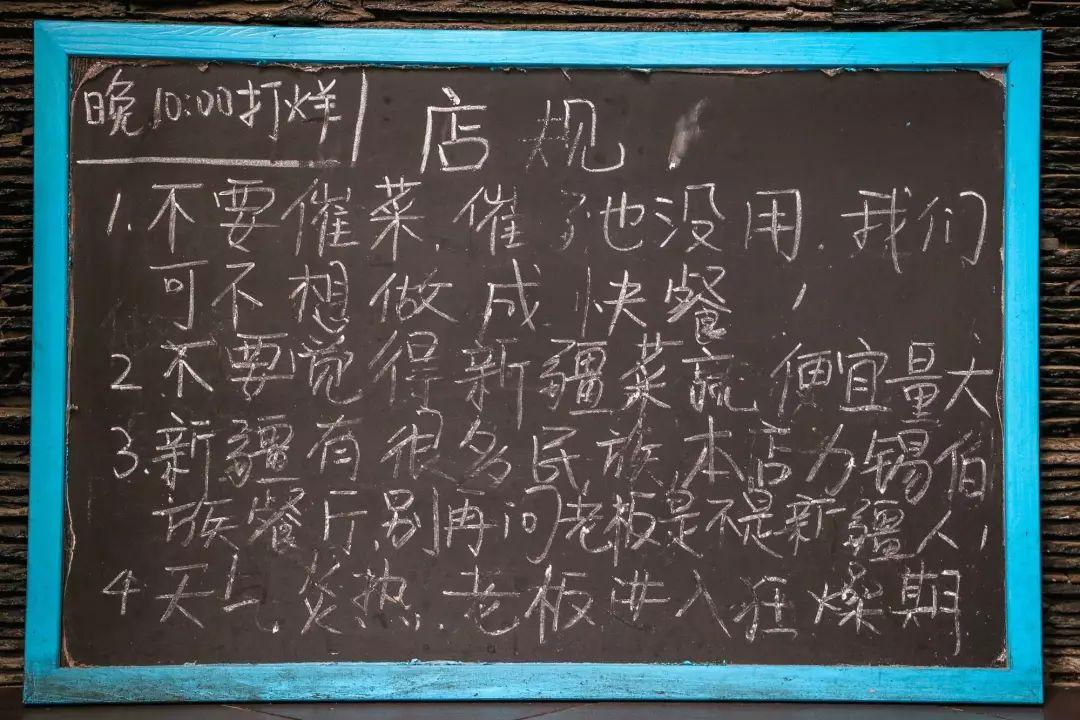 晚10:00打烊
店规
1.不要催菜,催了也没用.我们
可不想做成快餐,
2.不要觉得新疆菜就便宜量大
3.新疆有很多民族.本店为锡伯
族餐厅,别再问老板是不是新疆人,
4天气炎热.老板进入狂燥期